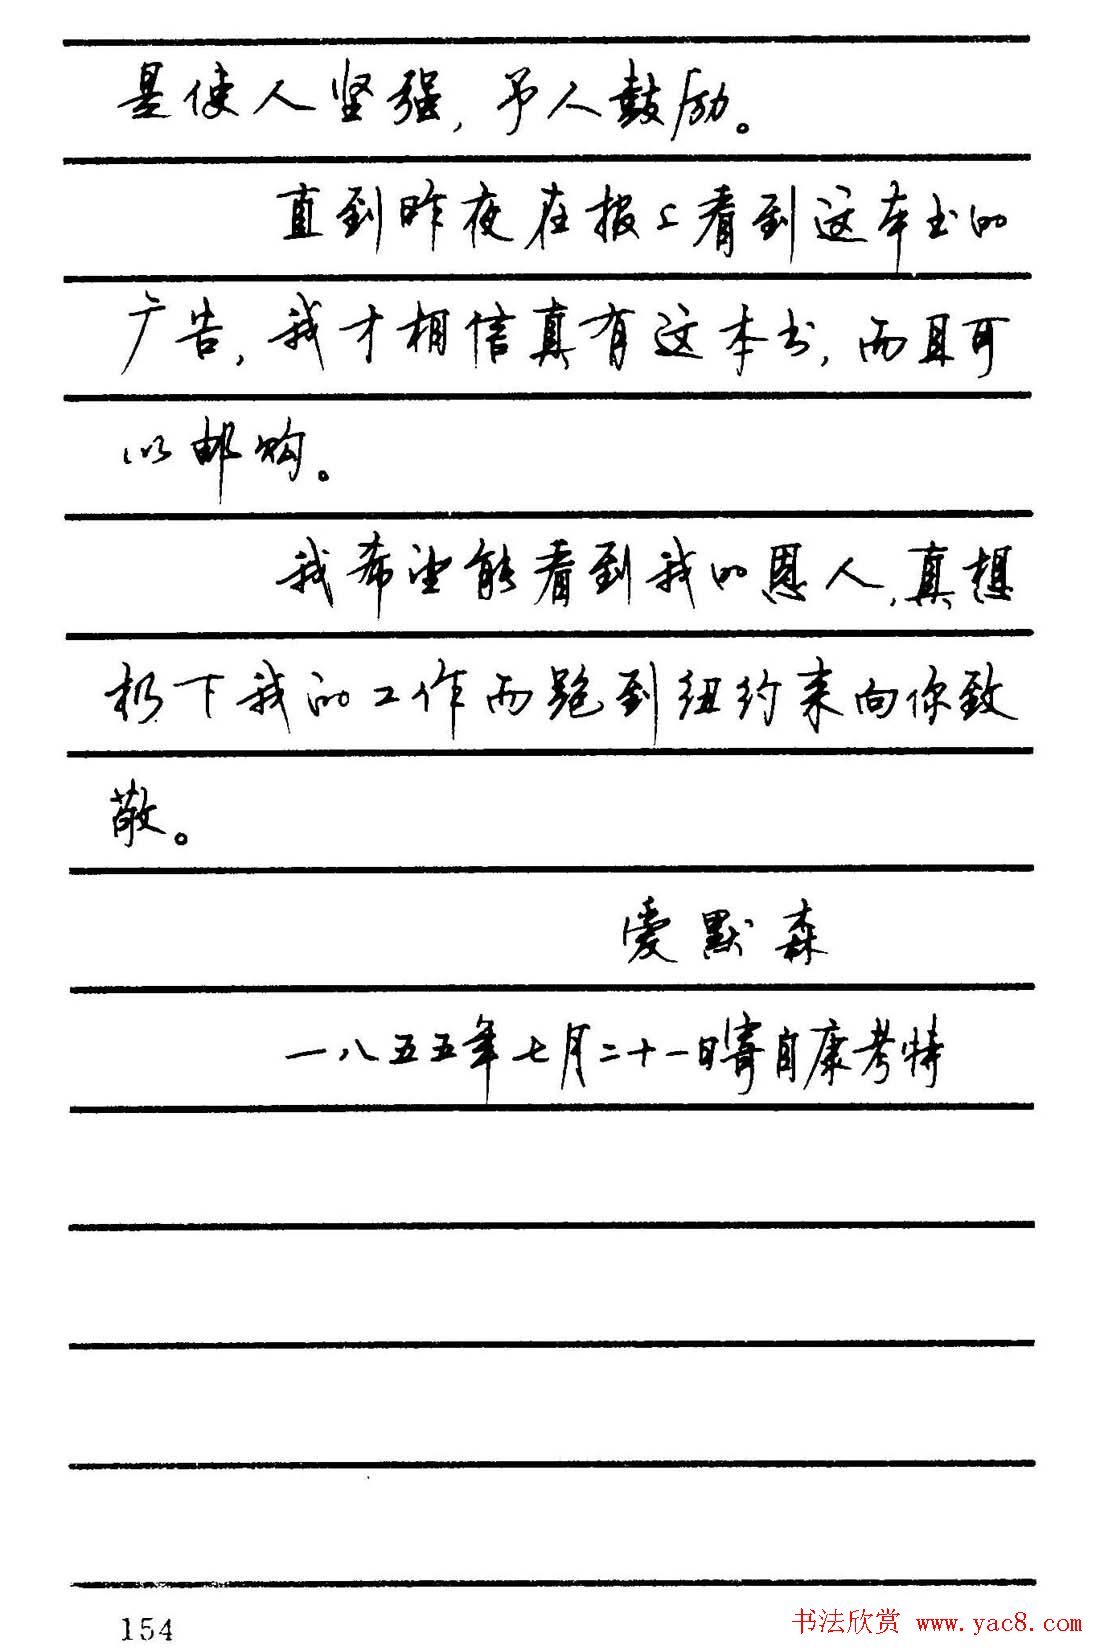 是使人坚强,予人鼓励。
直到昨夜在报上看到这本书的
广告,我才相信真有这本书,而且可
以邮购。
我希望能看到我的恩人,真想
扔下我的工作而跑到纽约来向你致
敬。
爱默森
一八五五年七月二十一日寄自康考特
154
书法欣赏 www.yac8.com